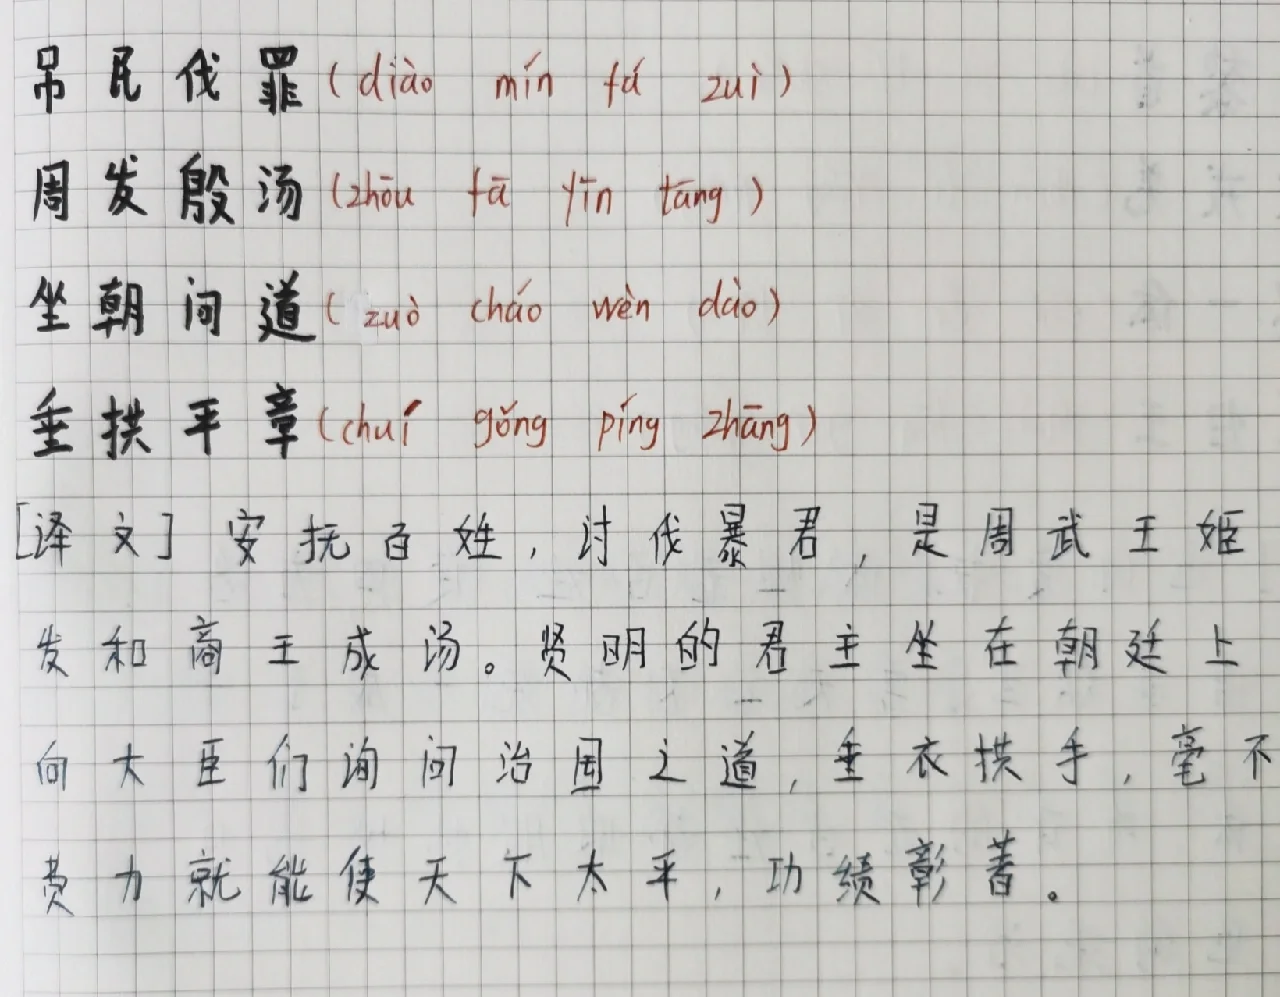 吊民伐罪(diào mín fá zuì)
周发殷汤(zhōu fā yīn tāng)
坐朝问道(zuò cháo wèn dào)
垂拱平章(chuí gǒng píng zhāng)
[译文]安抚百姓,讨伐暴君,是周武王姬
发和商王成汤。贤明的君主坐在朝廷上
向大臣们询问治国之道,垂衣拱手,毫不
费力就能使天下太平,功绩彰著。